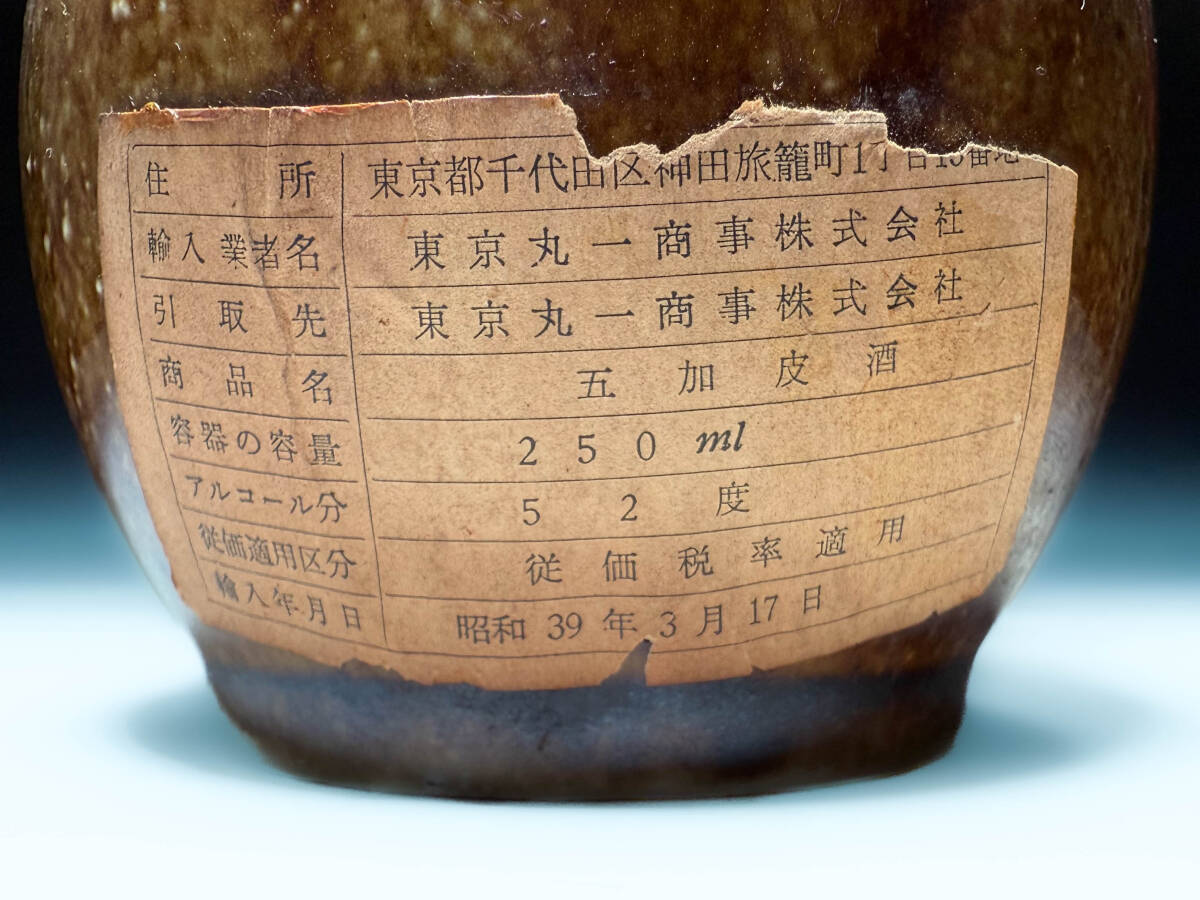 住所 東京都千代田区神田旅籠町1丁目15番地
輸入業者名 東京丸一商事株式会社
引取先 東京丸一商事株式会社
商品名 五加皮酒
容器の容量 250ml
アルコール分 52度
従価適用区分 従価税率適用
輸入年月日 昭和39年3月17日